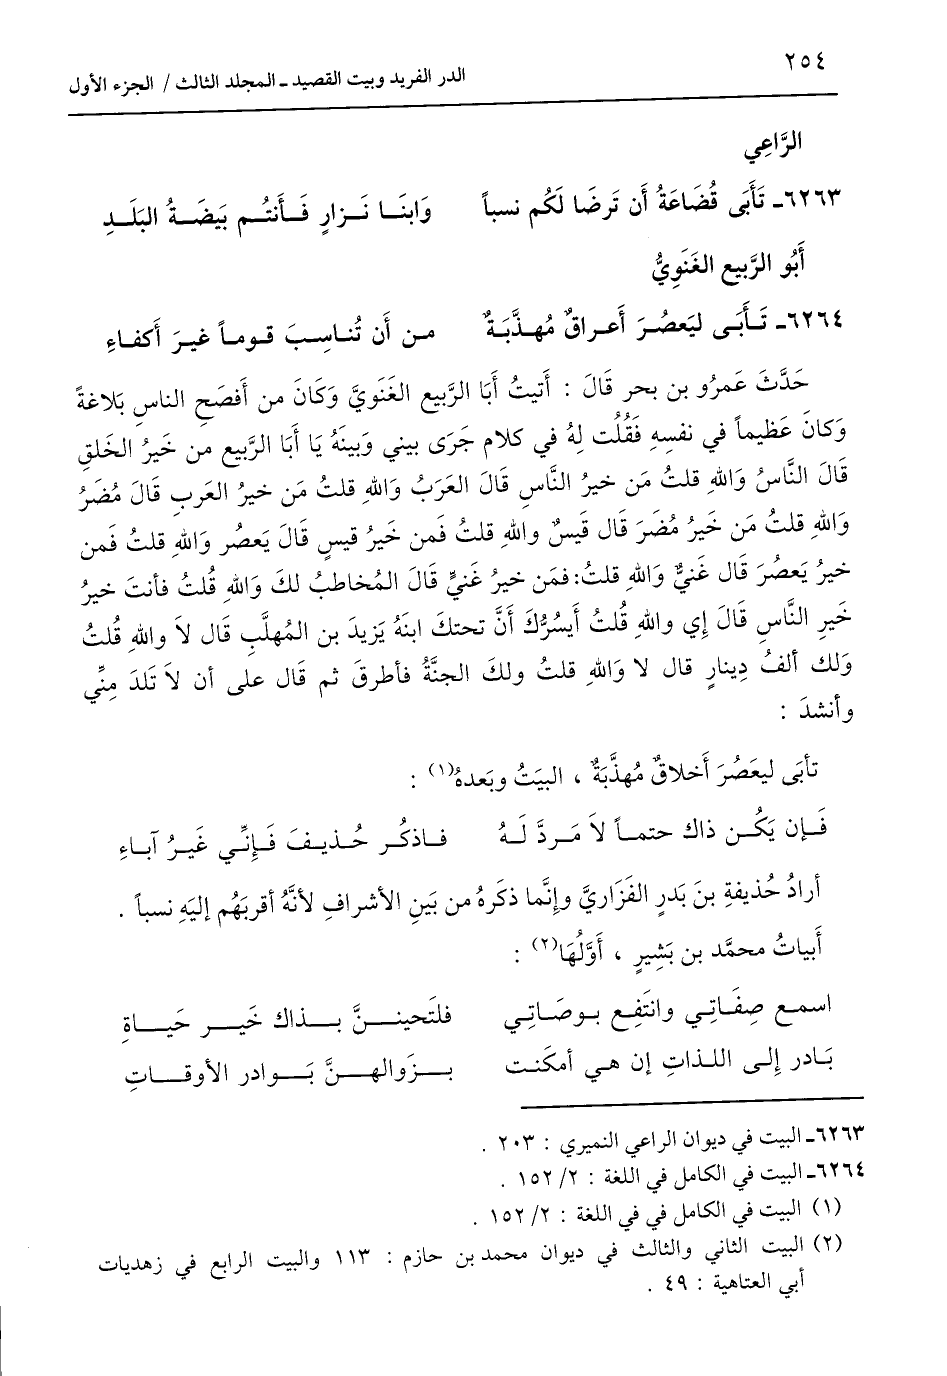 ٢٥٤
الدر الفريد وبيت القصيد ـ المجلد الثالث / الجزء الأول
الرَّاعِي
٦٢٦٣ـ تَأبَى قُضَاعَةُ أن تَرضَا لَكُم نسباً وَابنَـا نـزارٍ فَـأنتُـم بَيضَـةُ البَلَـدِ
أَبُو الرَّبيع الغَنَوِيُّ
٦٢٦٤ـ تَـأبَـى ليَعصُرَ أَعراقٌ مُهذَّبَةٌ مـن أَن تُنـاسِـبَ قـومـاً غيـرَ أَكفـاءِ
حَدَّثَ عَمرُو بن بحر قَالَ : أتيتُ أبَا الرَّبيع الغَنَويَّ وَكَانَ من أفصَحِ الناسِ بَلاغةً
وَكانَ عَظيماً في نفسِهِ فَقُلُت لِهُ في كلام جَرَى بيني وَبينَهُ يَا أبَا الرَّبيع من خَيرُ الخَلقِ
قَالَ النَّاسُ وَاللهِ قلتُ مَن خيرُ النَّاسِ قَالَ العَرَبُ وَاللهِ قلتُ مَن خيرُ العَربِ قَالَ مُضَرُ
وَاللهِ قلتُ مَن خَيرُ مُضَرَ قَال قَيسٌ واللهِ قلتُ فَمن خَيرُ قيسٍ قَالَ يَعصُر وَاللهِ قلتُ فَمن
خيرُ يَعصُرَ قَال غَنيٌّ وَاللهِ قلتُ: فمَن خيرُ غَنيٍّ قَالَ المُخاطبُ لكَ وَاللهِ قُلتُ فأنتَ خيرُ
خَيرِ النَّاسِ قَالَ إِي واللهِ قُلتُ أيسُرُّكَ أَنَّ تحتكَ ابنةُ يَزيدَ بن المُهلَّبِ قَال لاَ واللهِ قُلتُ
وَلك ألفُ دِينارٍ قال لا وَاللهِ قلتُ ولكَ الجنَّةُ فأطرقَ ثم قَال على أن لاَ تَلدَ مِنِّي
وأنشدَ :
تأبَى ليعَصُرَ أَخلاقٌ مُهذَّبَةٌ ، البَيتُ وبَعدهُ(١) :
فَـإن يَكُـن ذاك حتمـاً لاَ مَـردَّ لَـهُ فـاذكُـر حُـذيـفَ فَـإنِّـي غَيـرُ آبـاءِ
أرادُ حُذيفةِ بنَ بَدرٍ الفَزَاريَّ وإنَّما ذكَرهُ من بَينِ الأشرافِ لأنَّهُ أقربَهُم إليَهِ نسباً .
أَبياتُ محمَّد بن بَشيرٍ ، أَوَّلُهَا(٢) :
اسمـع صِفَـاتِـي وانتَفِـع بـوصَـاتِـي فلتَحينـنَّ بـذاك خَيـر حَيـاةِ
بَـادر إلـى اللـذاتِ إن هـي أمكَنـت بـزَوالهـنَّ بَـوادر الأوقـاتِ
٦٢٦٣ـ البيت في ديوان الراعي النميري : ٢٠٣ .
٦٢٦٤ـ البيت في الكامل في اللغة : ٢/ ١٥٢ .
(١) البيت في الكامل في في اللغة : ٢/ ١٥٢ .
(٢) البيت الثاني والثالث في ديوان محمد بن حازم : ١١٣ والبيت الرابع في زهديات
أبي العتاهية : ٤٩ .